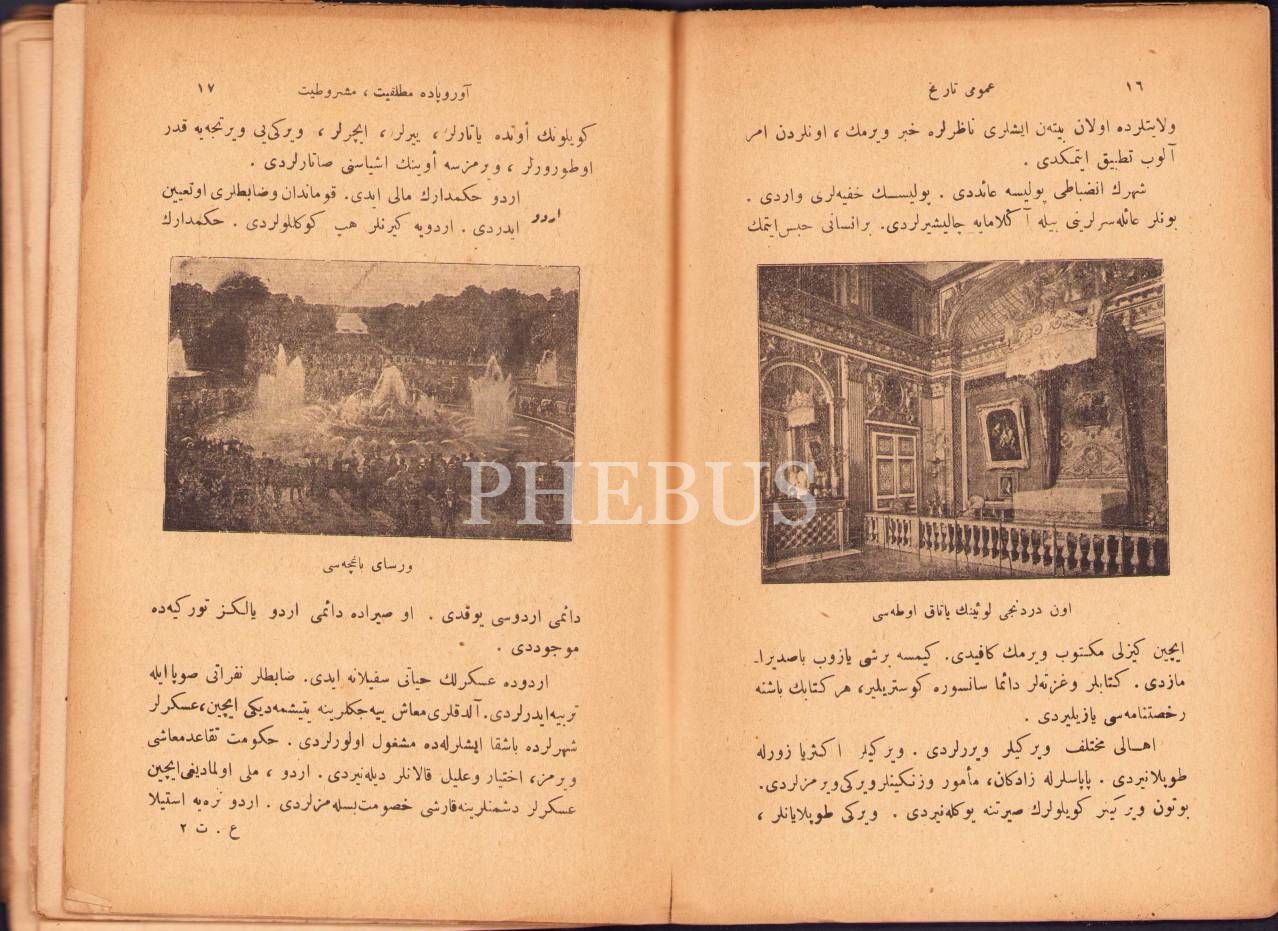 ١٦
عمومی تاریخ
ولایتلرده اولان بیته‌ن ایشلری ناظرلره خبر ویرمك ، اونلردن امر
آلوب تطبیق ایتمكدی .
شهرك انضباطی پولیسه عائددی . پولیسك خفیه‌لری واردی .
بونلر عائله سرلرینی بیله آڭلامایه چالیشیرلردی. برانسانی حبس ایتمك
اون دردنجی لوئینك یاتاق اوطه‌سی
ایچین كیزلی مكتوب ویرمك كافیدی. كیمسه برشی یازوب باصدیرا-
مازدی . كتابلر وغزته‌لر دائما سانسوره كوستریلیر، هر كتابك باشنه
رخصتنامه‌سی یازیلیردی .
اهالی مختلف ویركیلر ویررلردی . ویركیلر اكثریا زورله
طوپلانیردی . پاپاسلرله زادكان، مأمور وزنكینلر ویركی ویرمزلردی.
بوتون ویركیلر كویلولرك صیرتنه یوكله‌نیردی . ویركی طوپلایانلر ،
آوروپاده مطلقیت ، مشروطیت
١٧
كویلونك أونده یاتارلر ، ییرلر ، ایچرلر ، ویركی‌یی ویرنجه‌یه قدر
اوطورورلر ، ویرمزسه أوینك اشیاسنی صاتارلردی .
اردو
اردو حكمدارك مالی ایدی. قوماندان وضابطلری او تعیین
ایدردی . اردویه كیرنلر هپ كوكللولردی . حكمدارك
ورسای باغچه‌سی
دائمی اردوسی یوقدی . او صیراده دائمی اردو یالكز توركیه‌ده
موجوددی .
اردوده عسكرلك حیاتی سفیلانه ایدی. ضابطلر نفراتی صوپا ایله
تربیه ایدرلردی. آلدقلری معاش ییه‌جكلرینه یتیشمه‌دیكی ایچین، عسكرلر
شهرلرده باشقا ایشلرله‌ده مشغول اولورلردی . حكومت تقاعد معاشی
ویرمز، اختیار وعلیل قالانلر دیله‌نیردی. اردو ، ملی اولمادیغی ایچین
عسكرلر دشمنلرینه قارشی خصومت بسله‌مزلردی . اردو نره‌یه استیلا
ع . ت ٢
PHEBUS